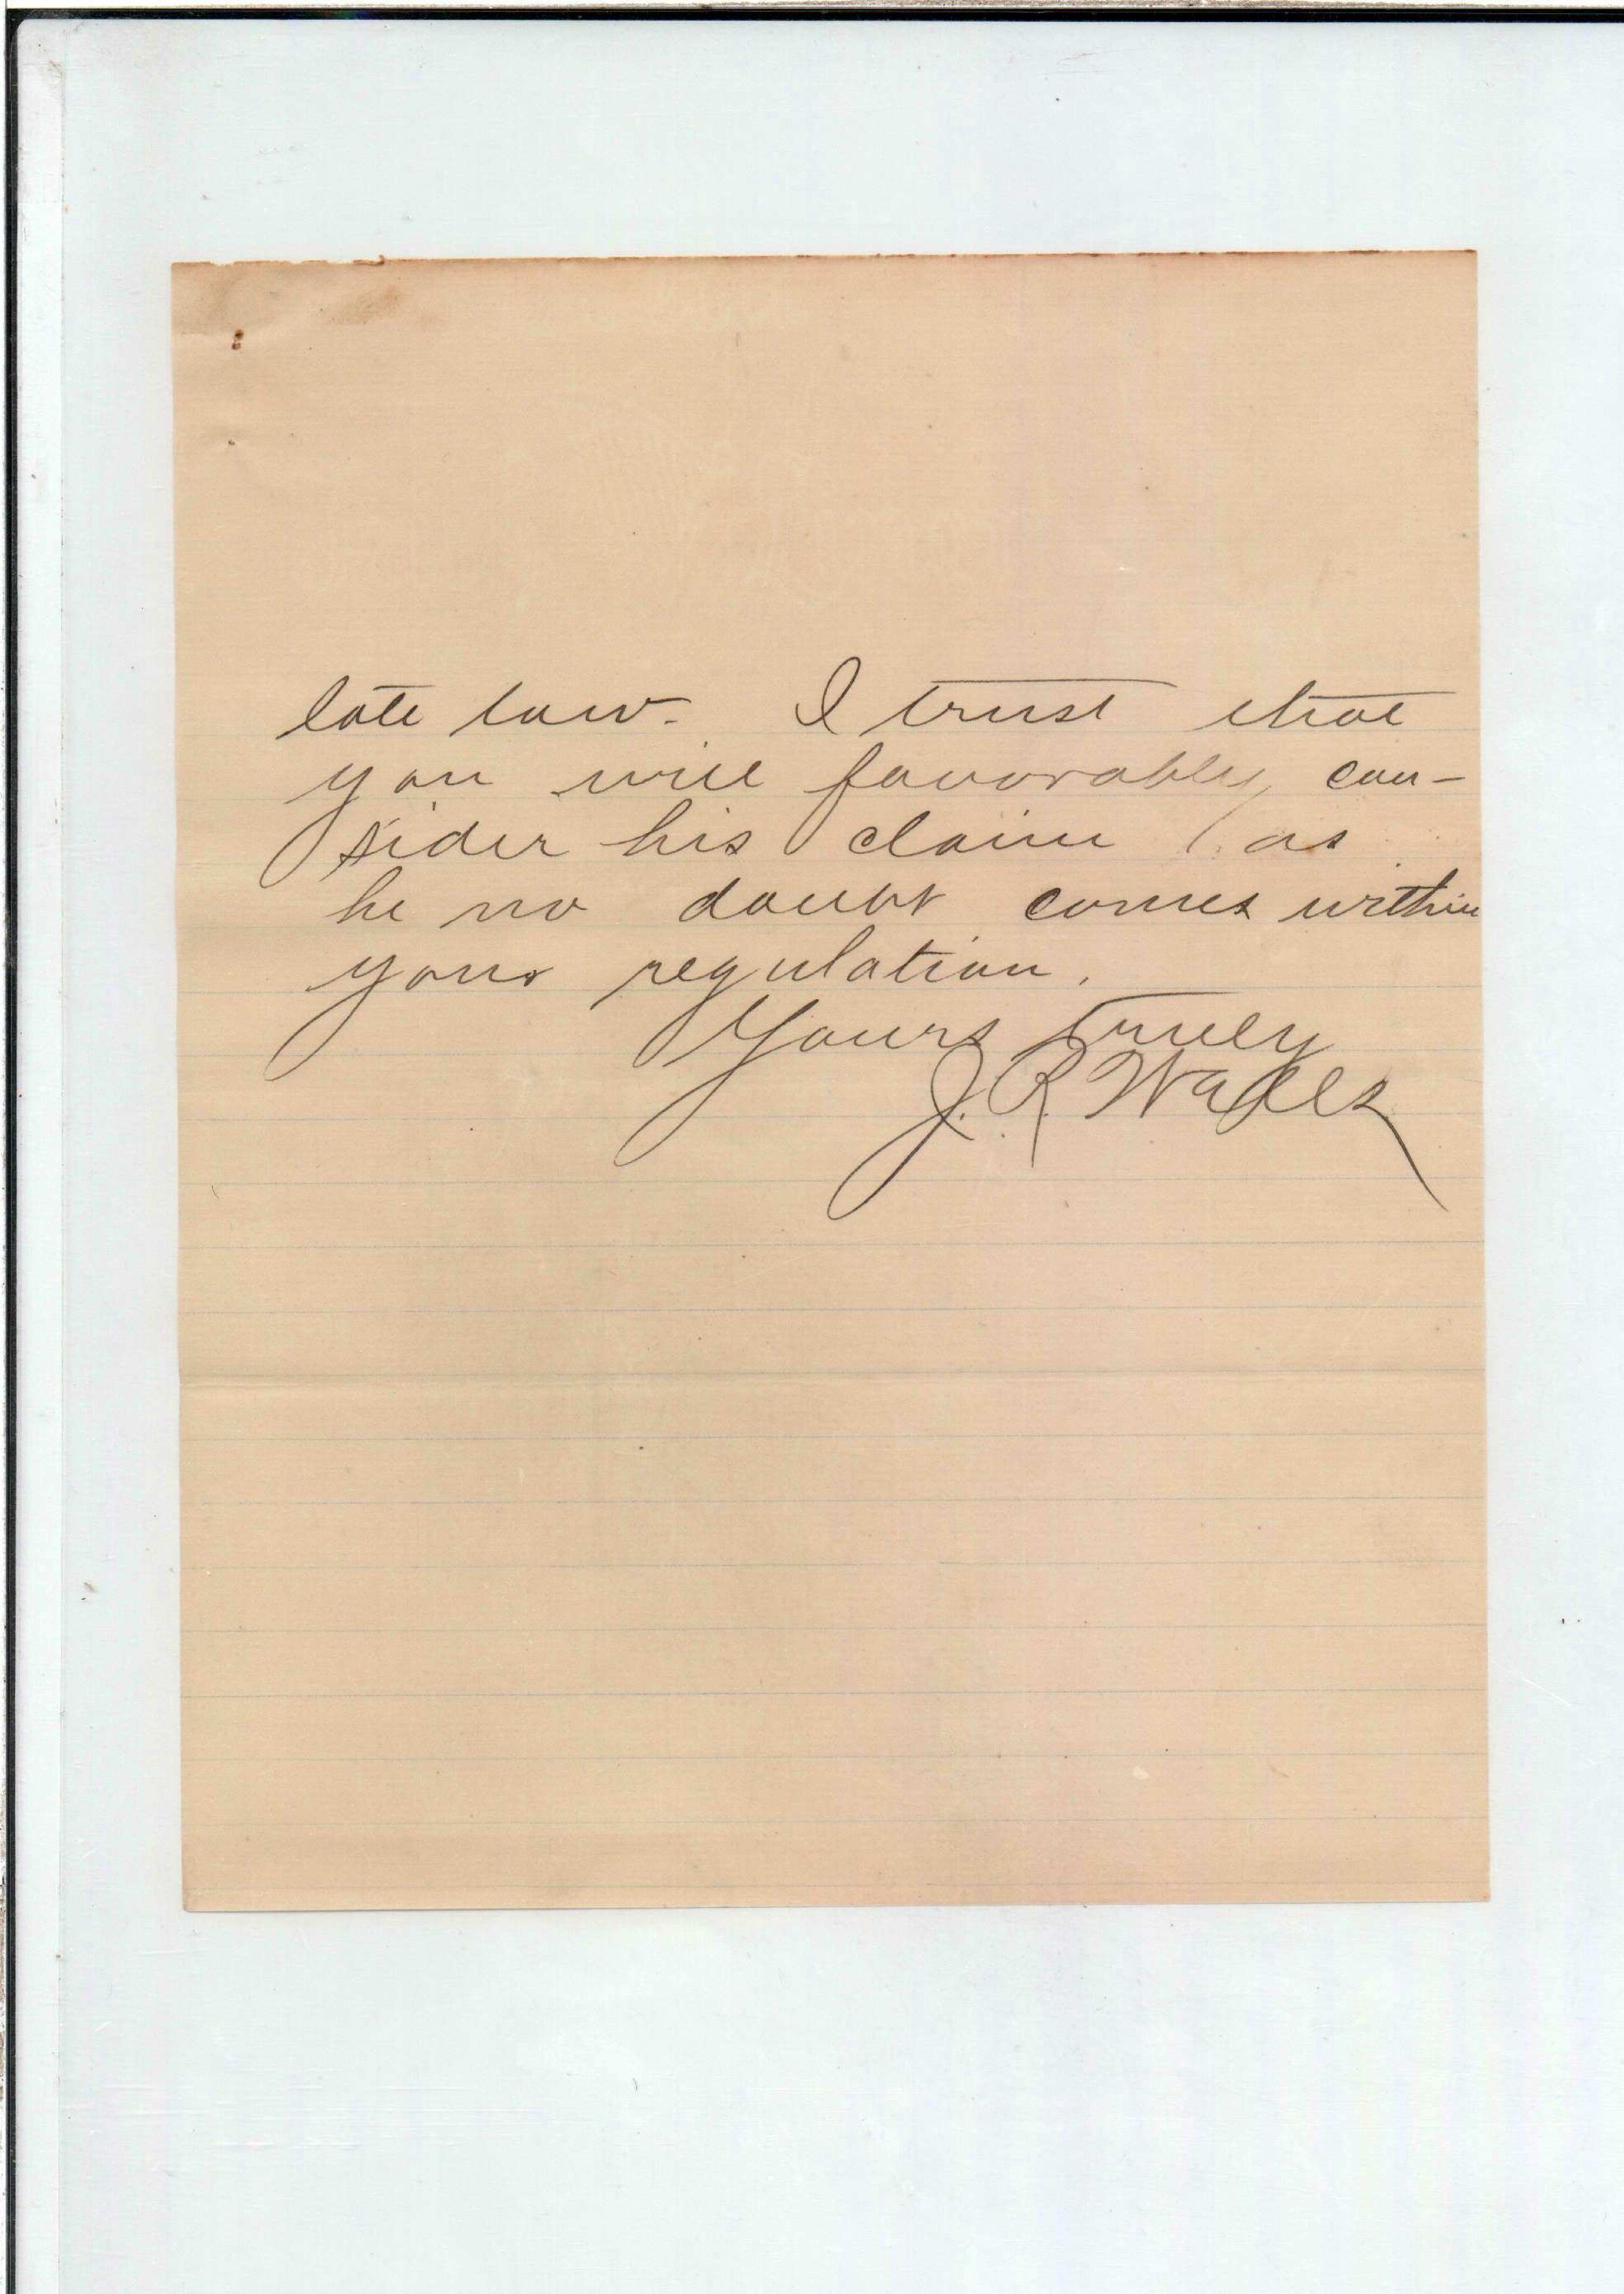 late law. I trust that
you will favorably con-
sider his claim as
he no doubt comes within
your regulation.
Yours truly
J. R. Wales